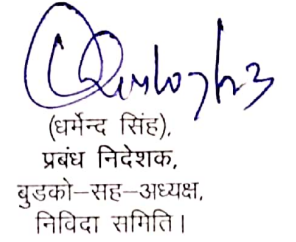 (धर्मेन्द सिंह),
प्रबंध निदेशक,
बुडको–सह–अध्यक्ष,
निविदा समिति।